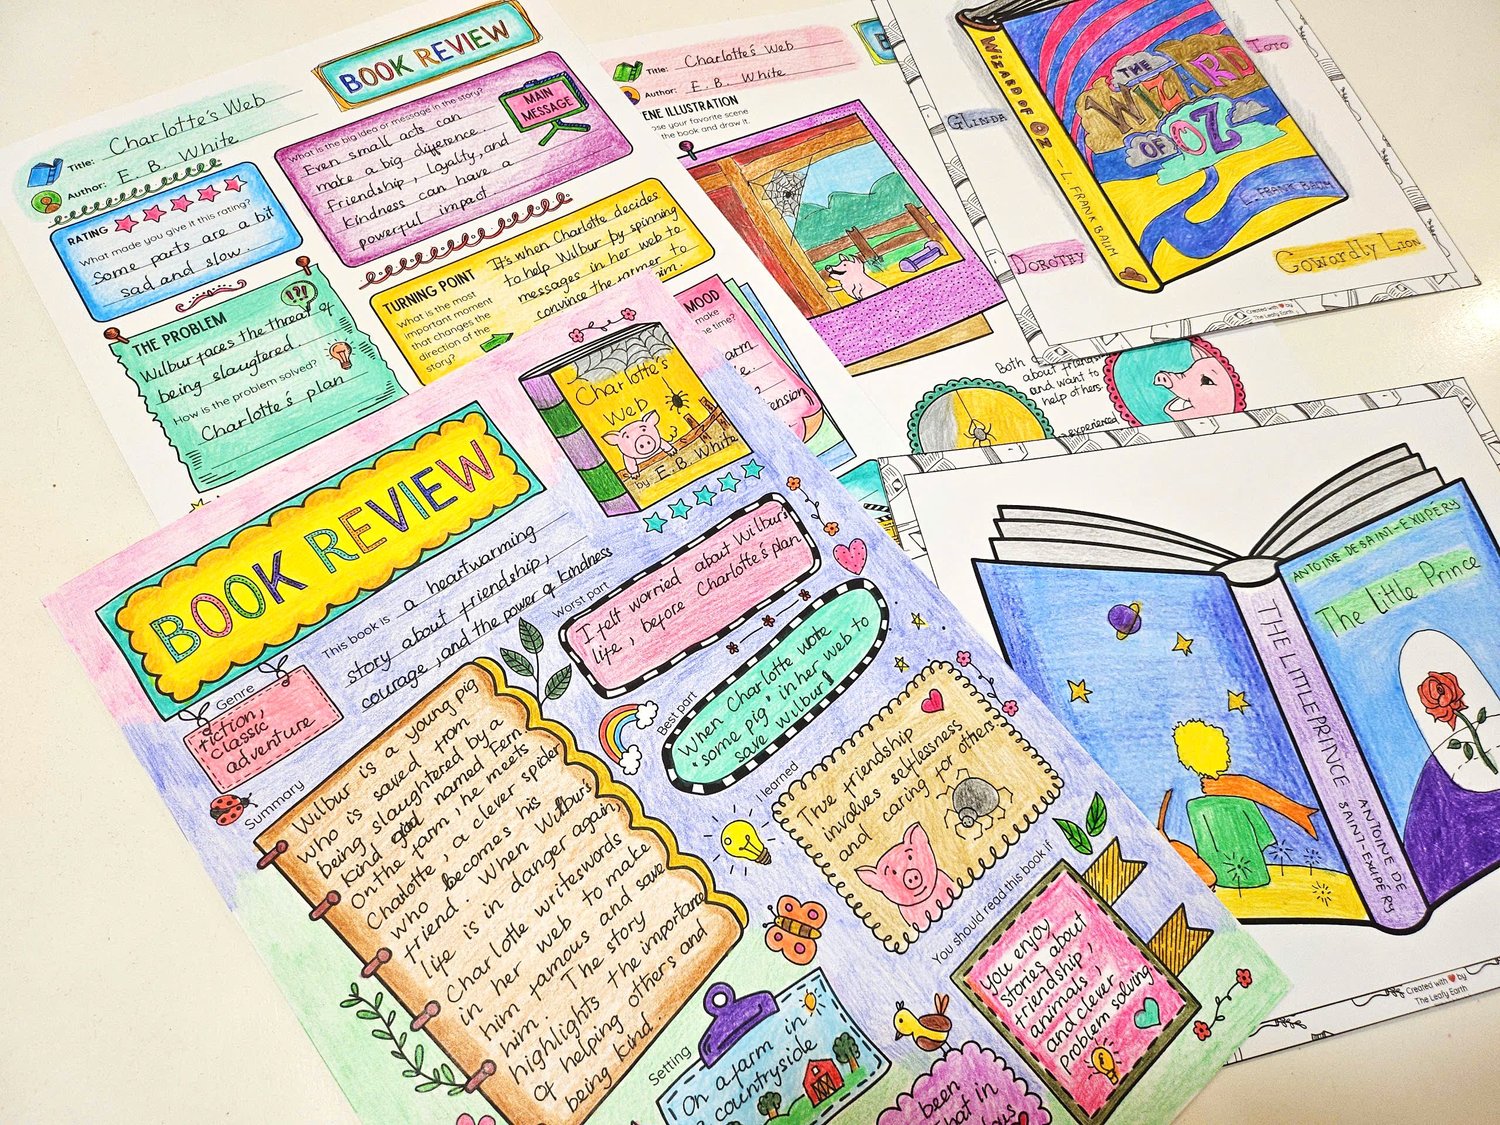 BOOK REVIEW
Title: Charlotte's Web
Author: E. B. White
RATING
What made you give it this rating?
Some parts are a bit
sad and slow.
What is the big idea or message in the story?
MAIN
MESSAGE
Even small acts can
make a big difference.
Friendship, loyalty, and
kindness can have a
powerful impact
THE PROBLEM
Wilbur faces the threat of
being slaugtered.
How is the problem solved?
Charlotte's plan
TURNING POINT
What is the most
important moment
that changes the
direction of the
story?
It's when Charlotte decides
to help Wilbur by spinning
messages in her web to
convince the farmer to
him.
Title: Charlotte's Web
Author: E. B. White
ENE ILLUSTRATION
ose your favorite scene
the book and draw it.
MOOD
make
he time?
arm
ension)
Both
about friendship
and want to
help others.
experienced
WIZARD OF OZ - L. FRANK BAUM
THE
WIZARD
OF OZ
L. FRANK BAUM
TOTO
GLINDA
DOROTHY
COWARDLY LION
Created with by
The Leafy Earth
BOOK REVIEW
Charlotte's
Web
by E. B. White
This book is a heartwarming
story about friendship,
courage, and the power of kindness
Genre
fiction,
classic
adventure
Worst part
I felt worried about Wilbur's
life, before Charlotte's plan
Best part
When Charlotte wrote
"some pig" in her web to
save Wilbur
Summary
Wilbur is a young pig
who is saved from
being slaughtered by a
kind named Fern.
On the farm, he meets
Charlotte, a clever spider
who becomes his
friend. When Wilbur's
life is in danger again,
Charlotte writes words
in her web to make
him famous and save
him. The story
highlights the importance
of helping others and
being kind.
I learned
True friendship
involves selflessness
and caring for others
You should read this book if
you enjoy
stories about
friendship,
animals,
and clever
problem solving
Setting
On a farm in
countryside
been
that in
ANTOINE DE SAINT-EXUPERY
The Little Prince
THE LITTLE PRINCE
ANTOINE DE
SAINT-EXUPÉRY
Created with by
The Leafy Earth